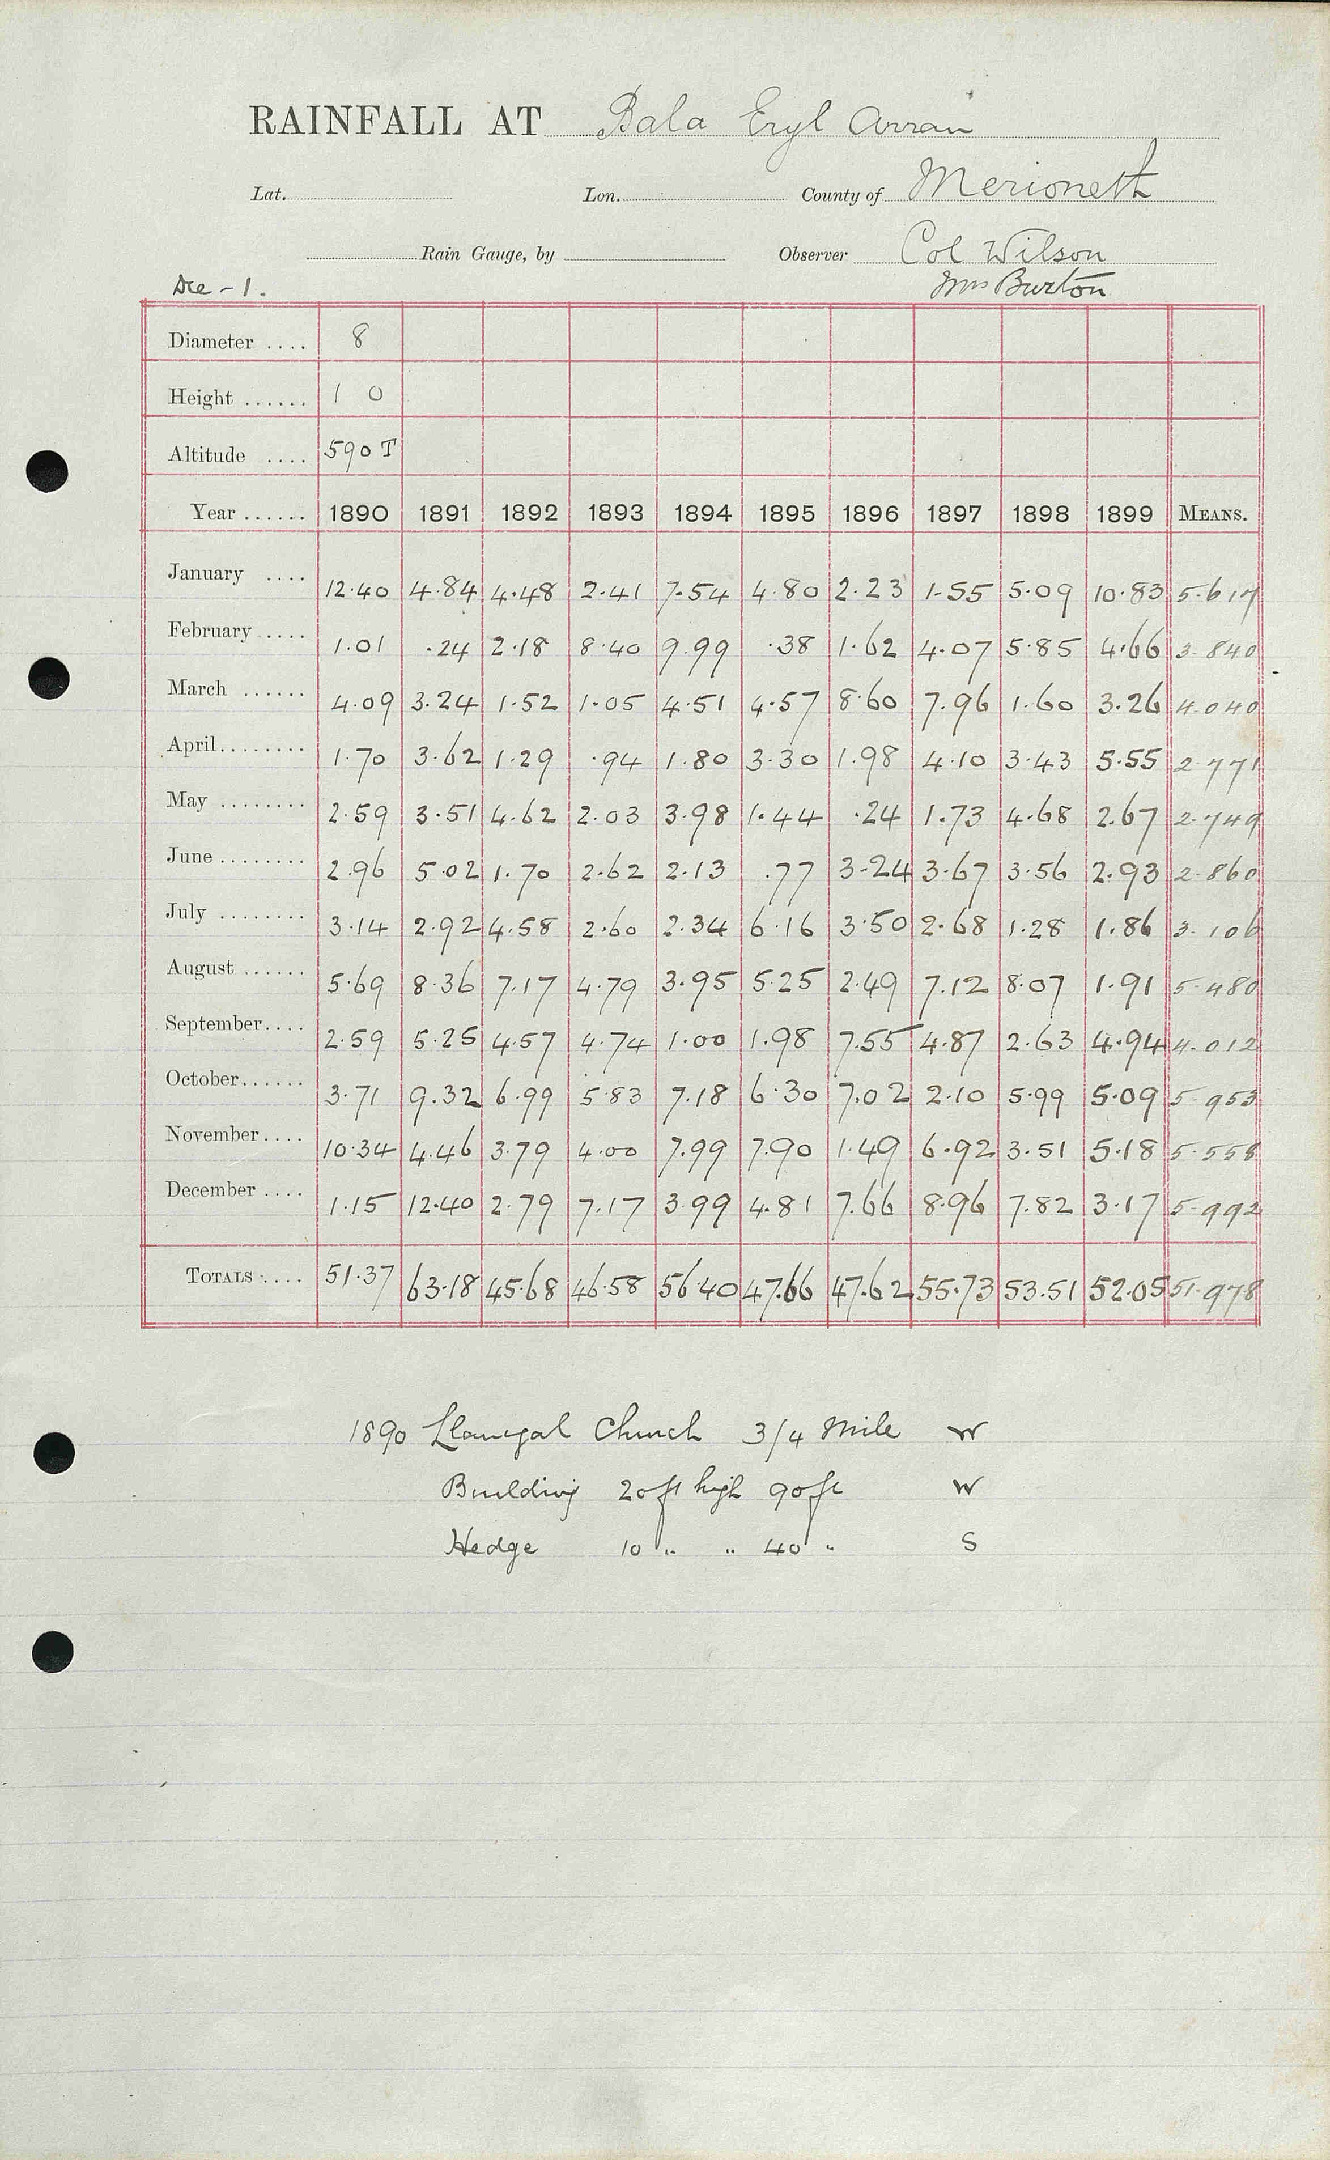 RAINFALL AT Bala Eryl Arran
Lat. Lon. County of Merioneth
Rain Gauge, by Observer Col Wilson
Dec - 1. Mrs Burton
Diameter .... 8
Height ...... 1 0
Altitude .... 590 T
Year ...... 1890 1891 1892 1893 1894 1895 1896 1897 1898 1899 MEANS.
January .... 12.40 4.84 4.48 2.41 7.54 4.80 2.23 1.55 5.09 10.83 5.617
February ..... 1.01 .24 2.18 8.40 9.99 .38 1.62 4.07 5.85 4.66 3.840
March ...... 4.09 3.24 1.52 1.05 4.51 4.57 8.60 7.96 1.60 3.26 4.040
April ........ 1.70 3.62 1.29 .94 1.80 3.30 1.98 4.10 3.43 5.55 2.771
May ........ 2.59 3.51 4.62 2.03 3.98 1.44 .24 1.73 4.68 2.67 2.749
June ........ 2.96 5.02 1.70 2.62 2.13 .77 3.24 3.67 3.56 2.93 2.860
July ........ 3.14 2.92 4.58 2.60 2.34 6.16 3.50 2.68 1.28 1.86 3.106
August ...... 5.69 8.36 7.17 4.79 3.95 5.25 2.49 7.12 8.07 1.91 5.480
September .... 2.59 5.25 4.57 4.74 1.00 1.98 7.55 4.87 2.63 4.94 4.012
October ...... 3.71 9.32 6.99 5.83 7.18 6.30 7.02 2.10 5.99 5.09 5.953
November .... 10.34 4.46 3.79 4.00 7.99 7.90 1.49 6.92 3.51 5.18 5.558
December .... 1.15 12.40 2.79 7.17 3.99 4.81 7.66 8.96 7.82 3.17 5.992
TOTALS .... 51.37 63.18 45.68 46.58 56.40 47.66 47.62 55.73 53.51 52.05 51.978
1890 Church 3/4 Mile W
Building 20ft high 90ft W
Hedge 10 " " 40 " S